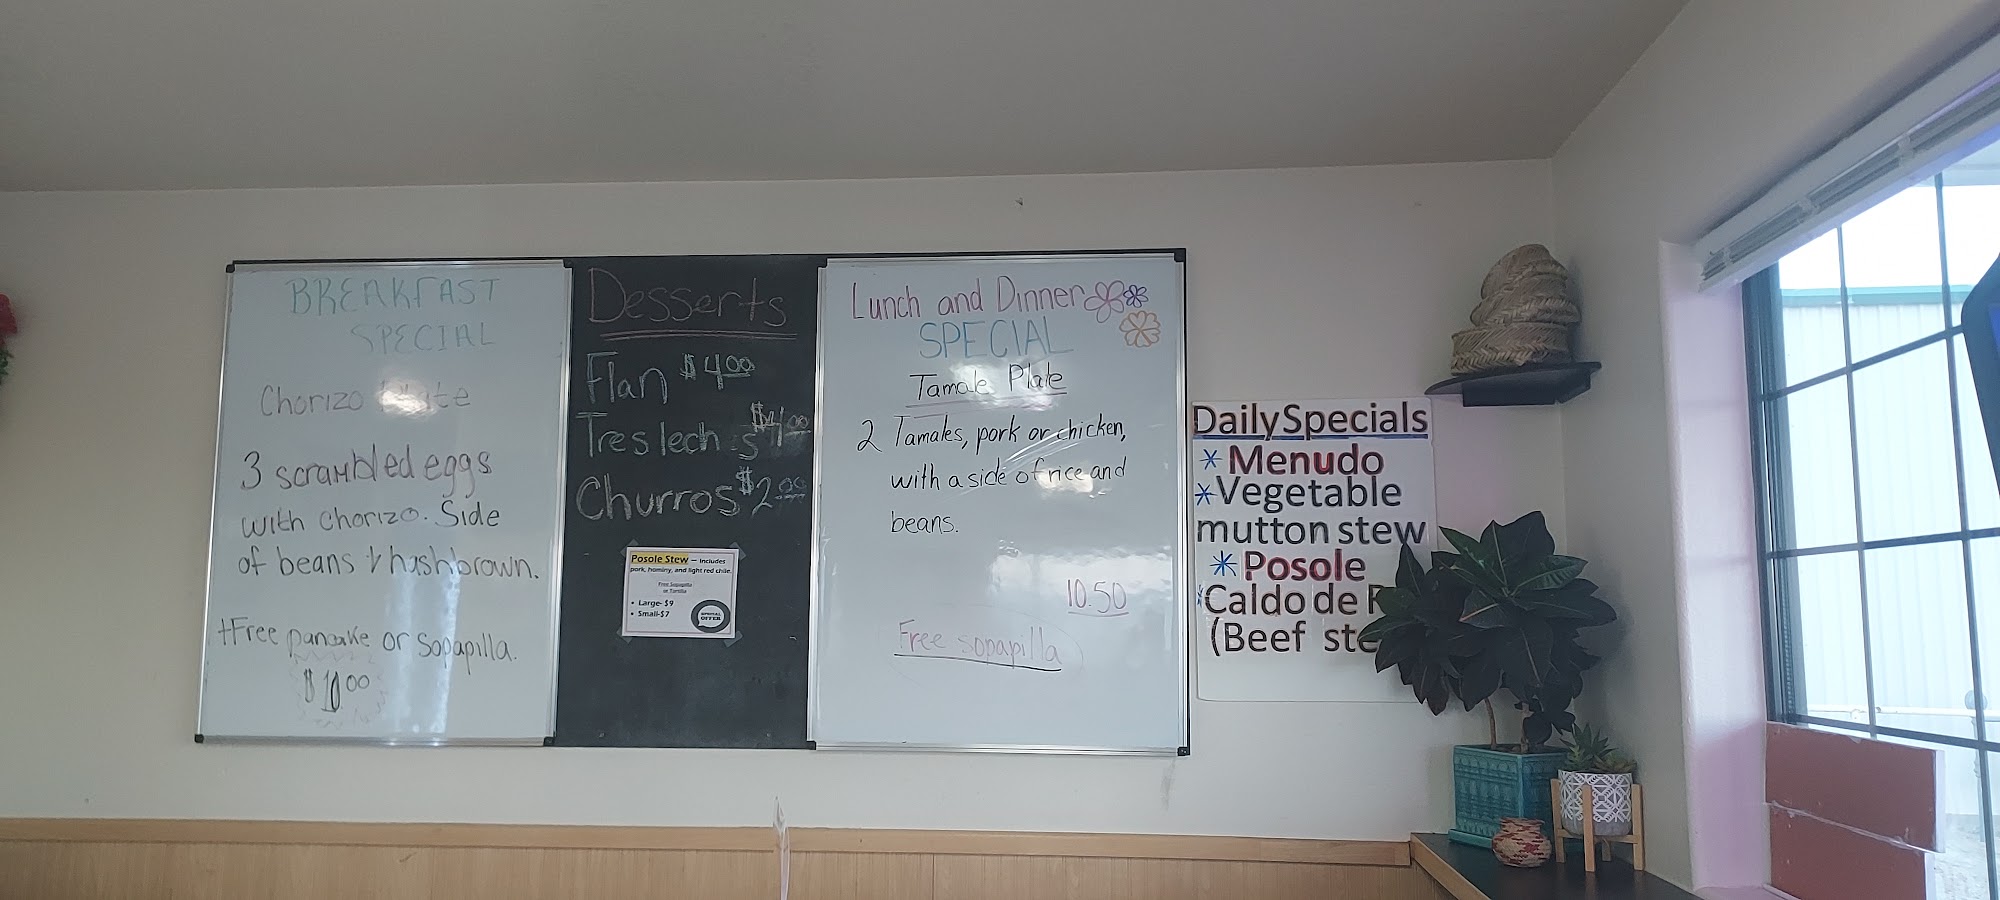 BREAKFAST
SPECIAL
Chorizo Plate
3 scrambled eggs
with chorizo. Side
of beans & hashbrown.
+Free pancake or sopapilla.
$10.00
Desserts
Flan $4.00
Tres lech
Churros $2.00
Posole Stew – Includes
pork, hominy, and light red chile.
Free Sopapilla
or Tortilla
• Large- $9
• Small-$7
SPECIAL
OFFER
Lunch and Dinner
SPECIAL
Tamale Plate
2 Tamales, pork or chicken,
with a side of rice and
beans.
10.50
Free sopapilla
Daily Specials
* Menudo
*Vegetable
mutton stew
* Posole
*Caldo de
(Beef